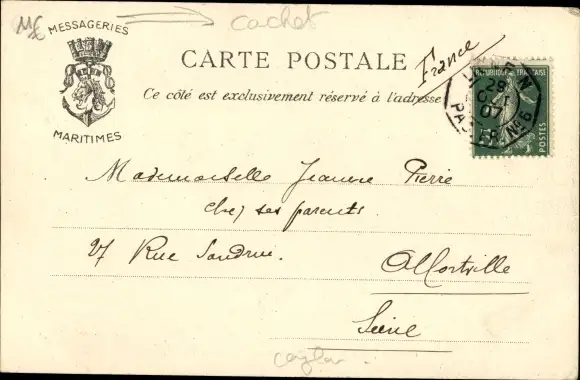 M€ cachet
MESSAGERIES
MARITIMES
CARTE POSTALE
France
Ce côté est exclusivement réservé à l'adresse
REPUBLIQUE FRANÇAISE
POSTES
28
OCT
07
Nº 6
Mademoiselle Jeanne Pierre
chez ses parents
27 Rue
Alfortville
Seine